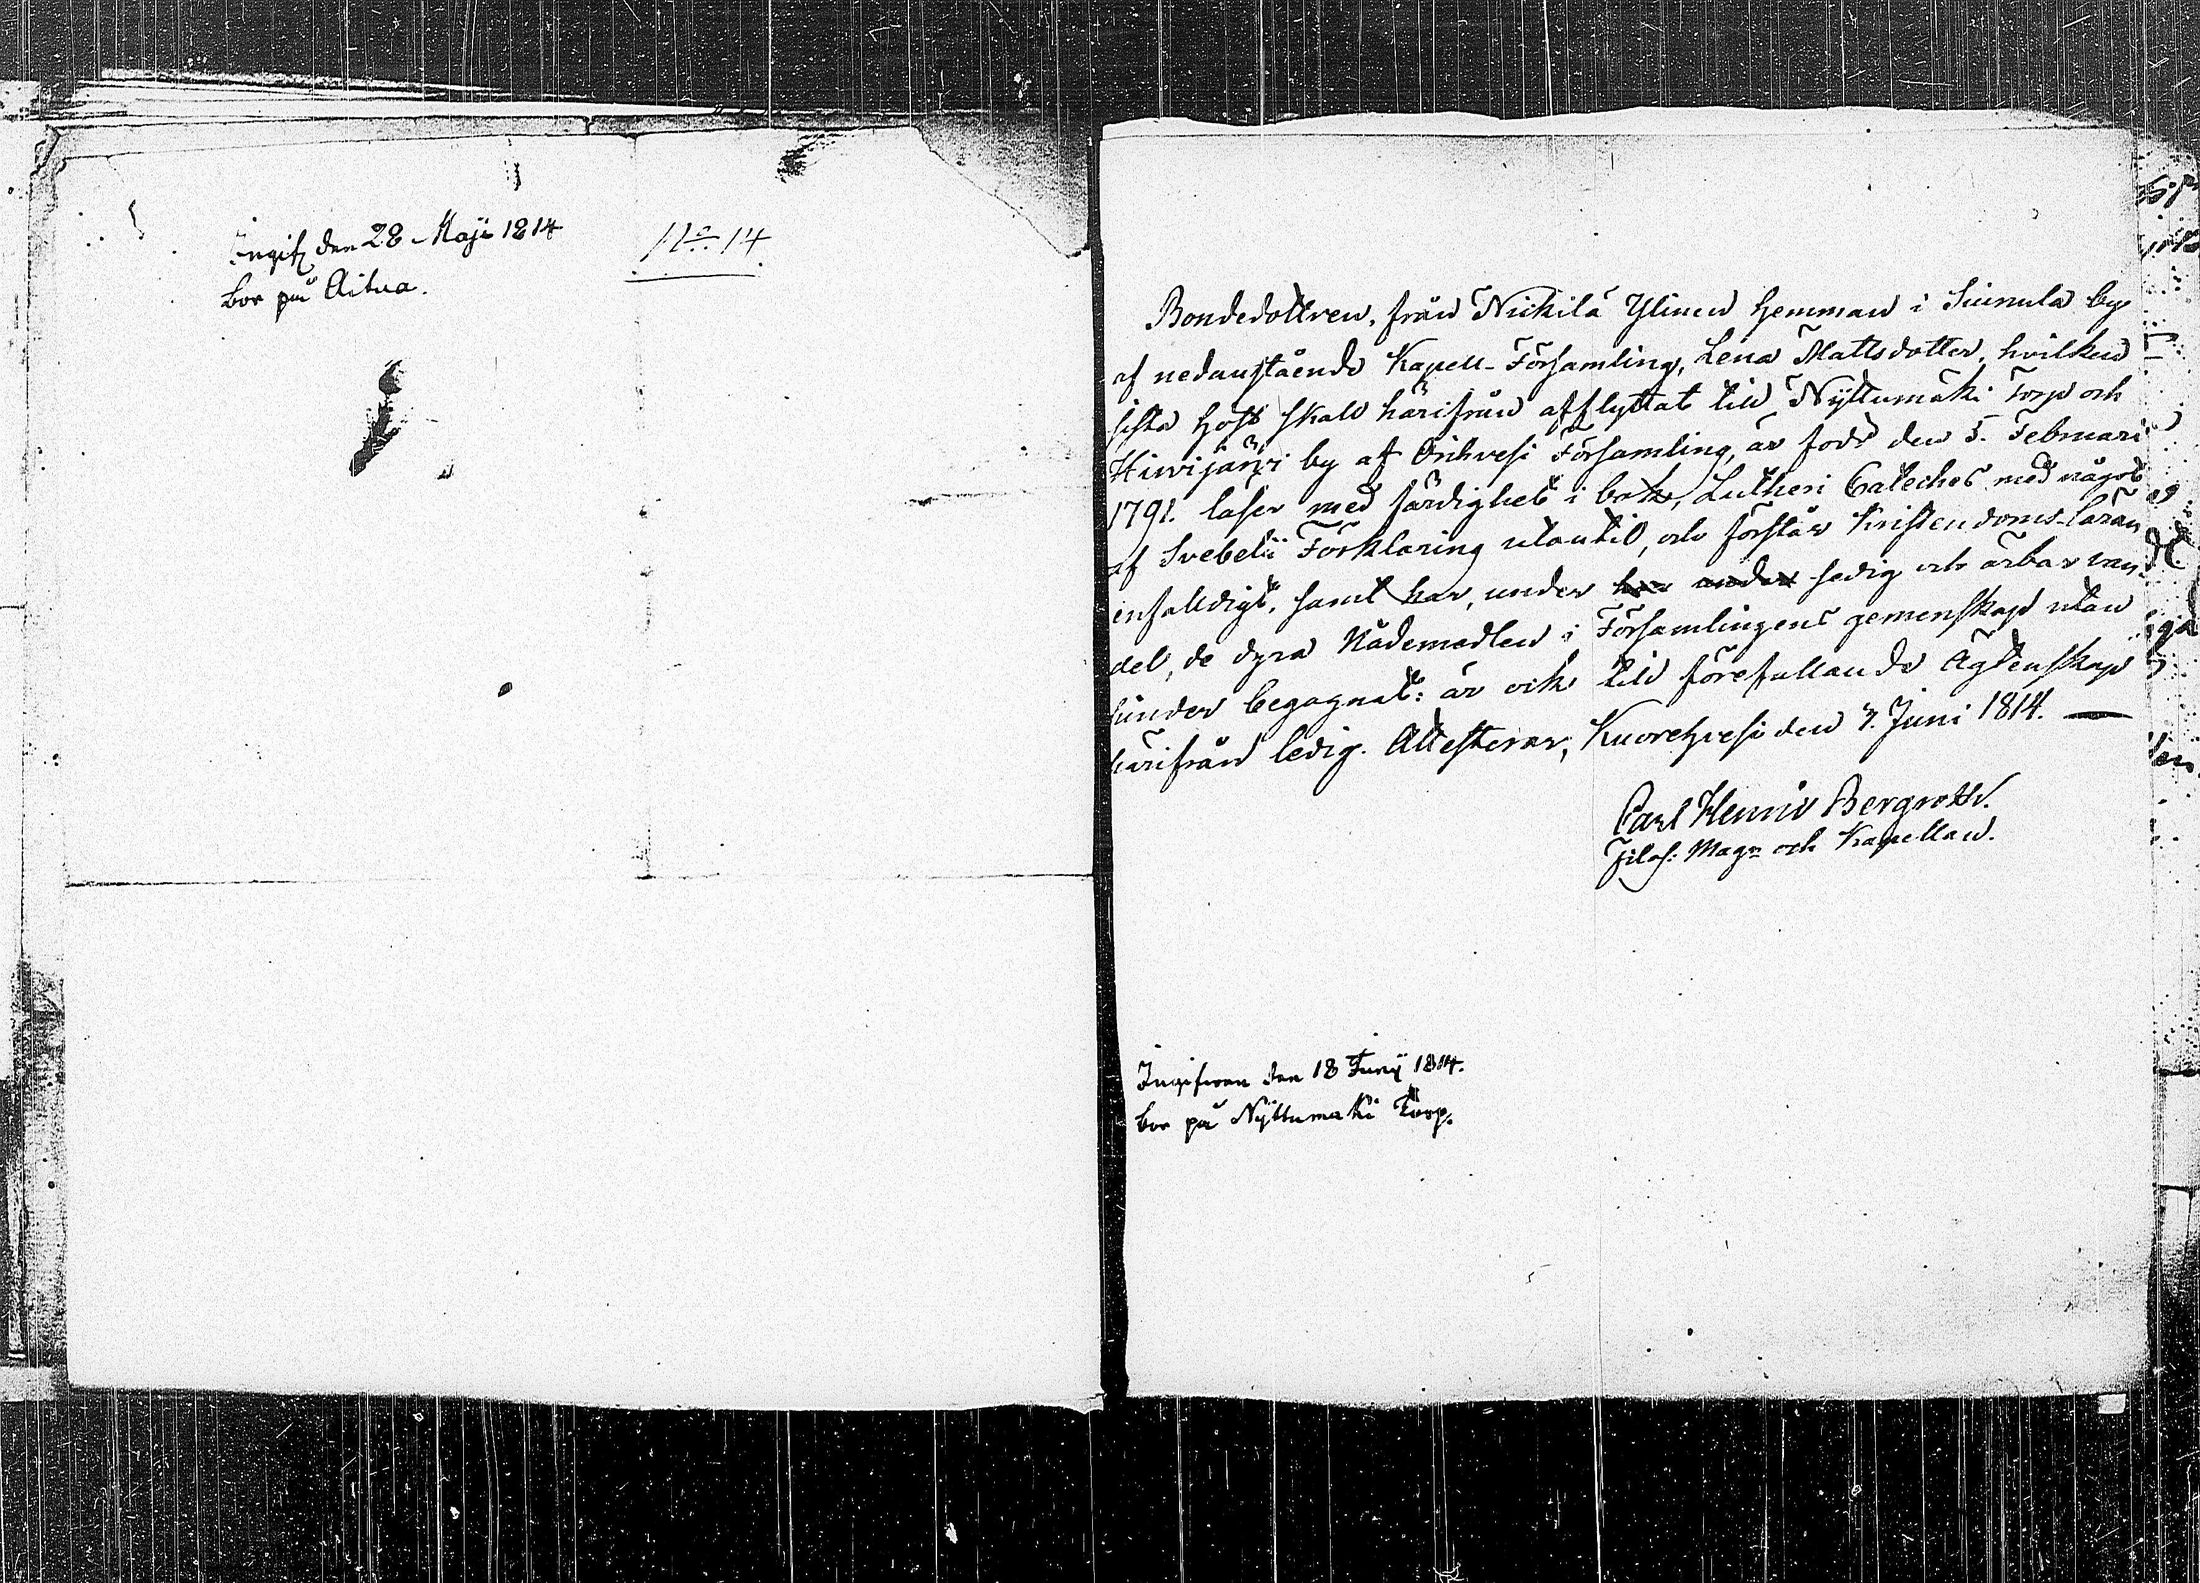 Ingifv den 28 Maji 1814
bor på Aitua.
No 14
Bondedottren, från Niskila Ylinen hemman i Suinula by
af nedanstående Kapell-Församling, Lena Mattsdotter, hvilken
sista höst skall härifrån afflyttat till Nyttumäki Torp och
Hirvijärvi by af Orihvesi Församling, är född den 5. Februari
1791. läser med färdighet i bok, Lutheri Cateches med något
af Svebelii Förklaring utantil, och förstår Kristendoms-läran
enfalldigt, samt har, under har under sedig och ärbar van-
del, de dyra Nådemedlen i Församlingens gemenskap utan
hinder begagnat: är ock till förefallande Ägtenskap
härifrån ledig. Attesterar, Kuorehvesi den 7. Juni 1814.
Carl Henric Bergroth.
Filos: Magr och Kapellan.
Ingifven den 18 Junij 1814.
bor på Nyttumaki Torp.